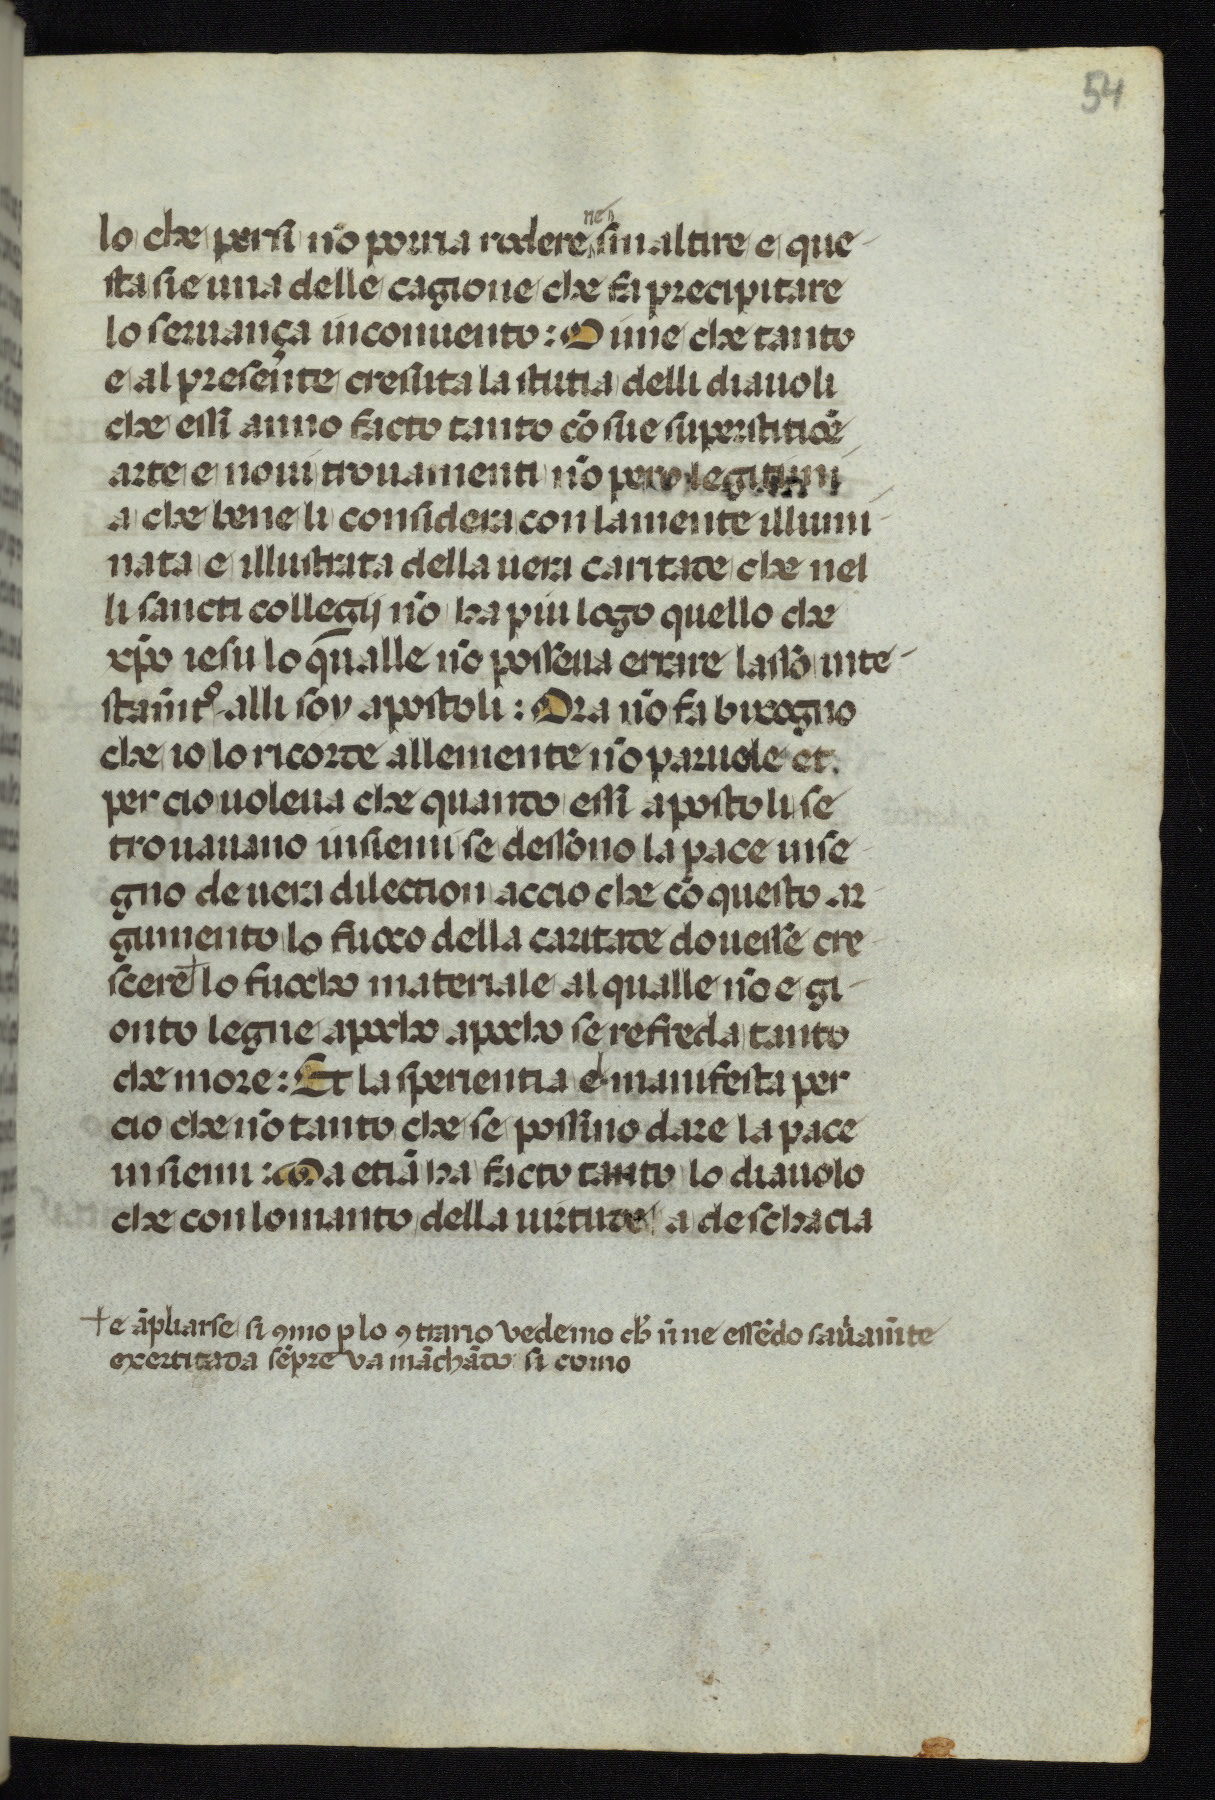 54
lo che persi nō porria rodere ne sinaltire e que-
sta sie una delle cagione che fa precipitare
lo seruança inconuento: O ime che tanto
e al presente cresiuta la stutia delli diauoli
che essi anno facto tanto cō sue superstitiōe
arte e noui trouamenti nō pero legitimi
a che bene li considera con lamente illumi-
nata e illustrata della uera caritate che nel
li sancti collegij nō ha piu logo quello che
xp̄o iesu lo qualle nō posseua errare lassō inte-
stam̄to alli soy apostoli: Ora nō fa bixogno
che io lo ricorde allemente nō paruole et
per cio uoleua che quando essi apostoli se
trouauano insiemi se dessōno la pace inse-
gno de uera dilection accio che cō questo ar-
gumento lo fuoco della caritate douesse cre-
scere + lo fuocho materiale al qualle nō e gi-
onto legne apocho apocho se refreda tanto
che more: Et la sperientia e manifesta per
cio che nō tanto che se possino dare la pace
insiemi: Ma etiā ha facto tanto lo diauolo
che con lo manto della uirtute a deschacia
+ e āpliarse si ꝯmo p lo ꝯtrario vedemo ch̄ essēdo
exercitada sēpre va māchādo si como